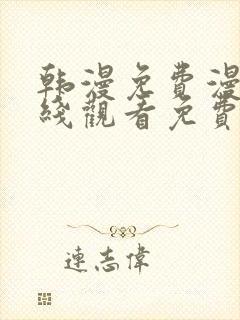 韩漫免費漫
綫觀看免費
連志偉